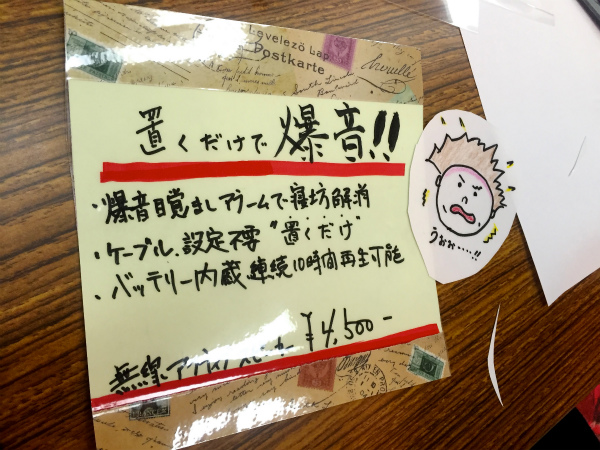 Levelező Lap
Postkarte
置くだけで爆音!!
・爆音目覚ましアラームで寝坊解消
・ケーブル、設定不要 "置くだけ"
・バッテリー内蔵 連続10時間再生可能
¥4,500-
無線
うおぉ……!!